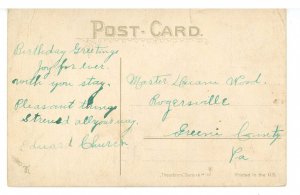 POST-CARD.
Birthday Greetings
Joy for ever
with you stay.
Pleasant things
Strewed all your way.
Eduard Church
Master Duane Wood
Rogersville
Greene County
Pa
Printed in the U.S.